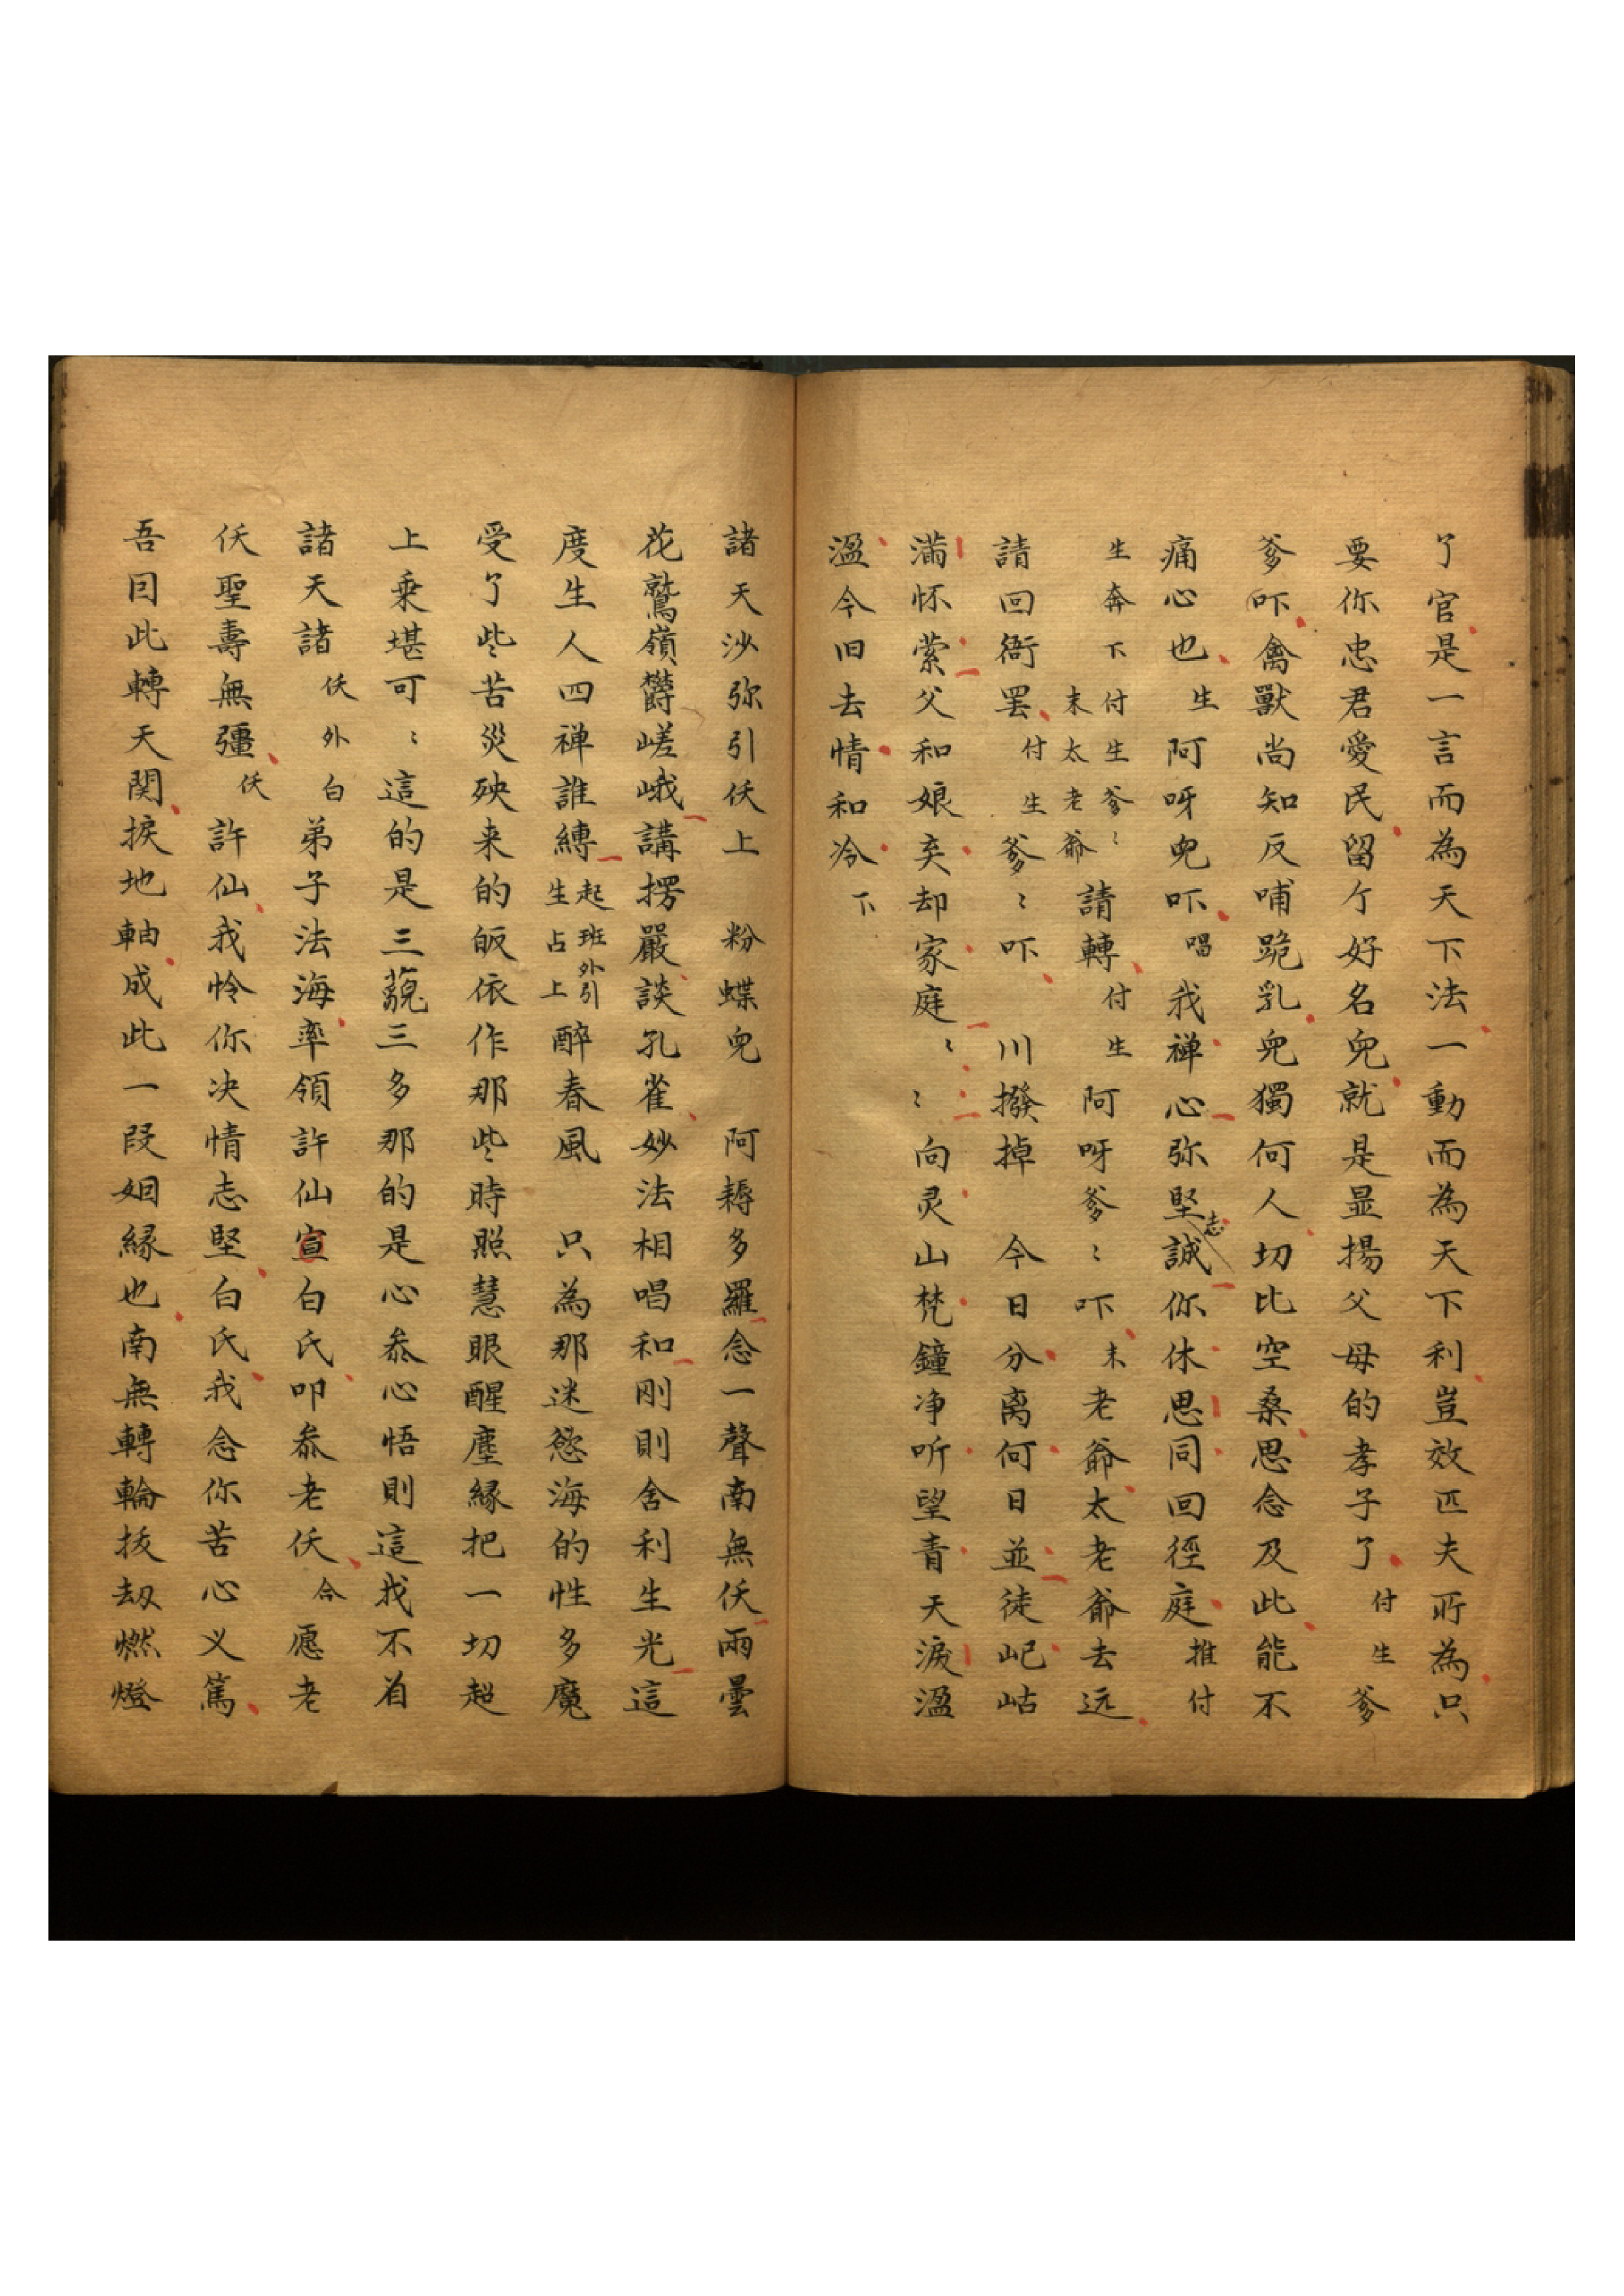 了官是一言而為天下法一動而為天下利豈效匹夫所為只
要你忠君愛民留个好名兒就是显揚父母的孝子了付生爹
爹吓禽獸尚知反哺跪乳兒獨何人切比空桑思念及此能不
痛心也生阿呀兒吓唱我禅心弥堅志誠你休思同回徑庭推付
生奔下付生爹〻末太老爺請轉付生阿呀爹〻吓末老爺太老爺去远
請回衙罢付生爹〻吓川撥掉今日分离何日並徒屺岵
滿怀萦父和娘弃却家庭〻〻向灵山梵鐘净听望青天淚溫
溫今旧去情和冷下
諸天沙弥引仸上粉蝶兒阿耨多羅念一聲南無仸雨曇
花鷲嶺欝嵯峨講楞嚴談孔雀妙法相唱和剛則舍利生光這
度生人四禅誰縛起班外引生占上醉春風只為那迷慾海的性多魔
受了些苦災殃来的皈依作那些時照慧眼醒塵縁把一切超
上乗堪可〻這的是三藐三多那的是心叅心悟則這我不省
諸天諸仸外白弟子法海率領許仙宣白氏叩叅老仸合愿老
仸聖壽無彊仸許仙我怜你决情志堅白氏我念你苦心义篤
吾囙此轉天関捩地軸成此一段姻縁也南無轉輪拔刼燃燈